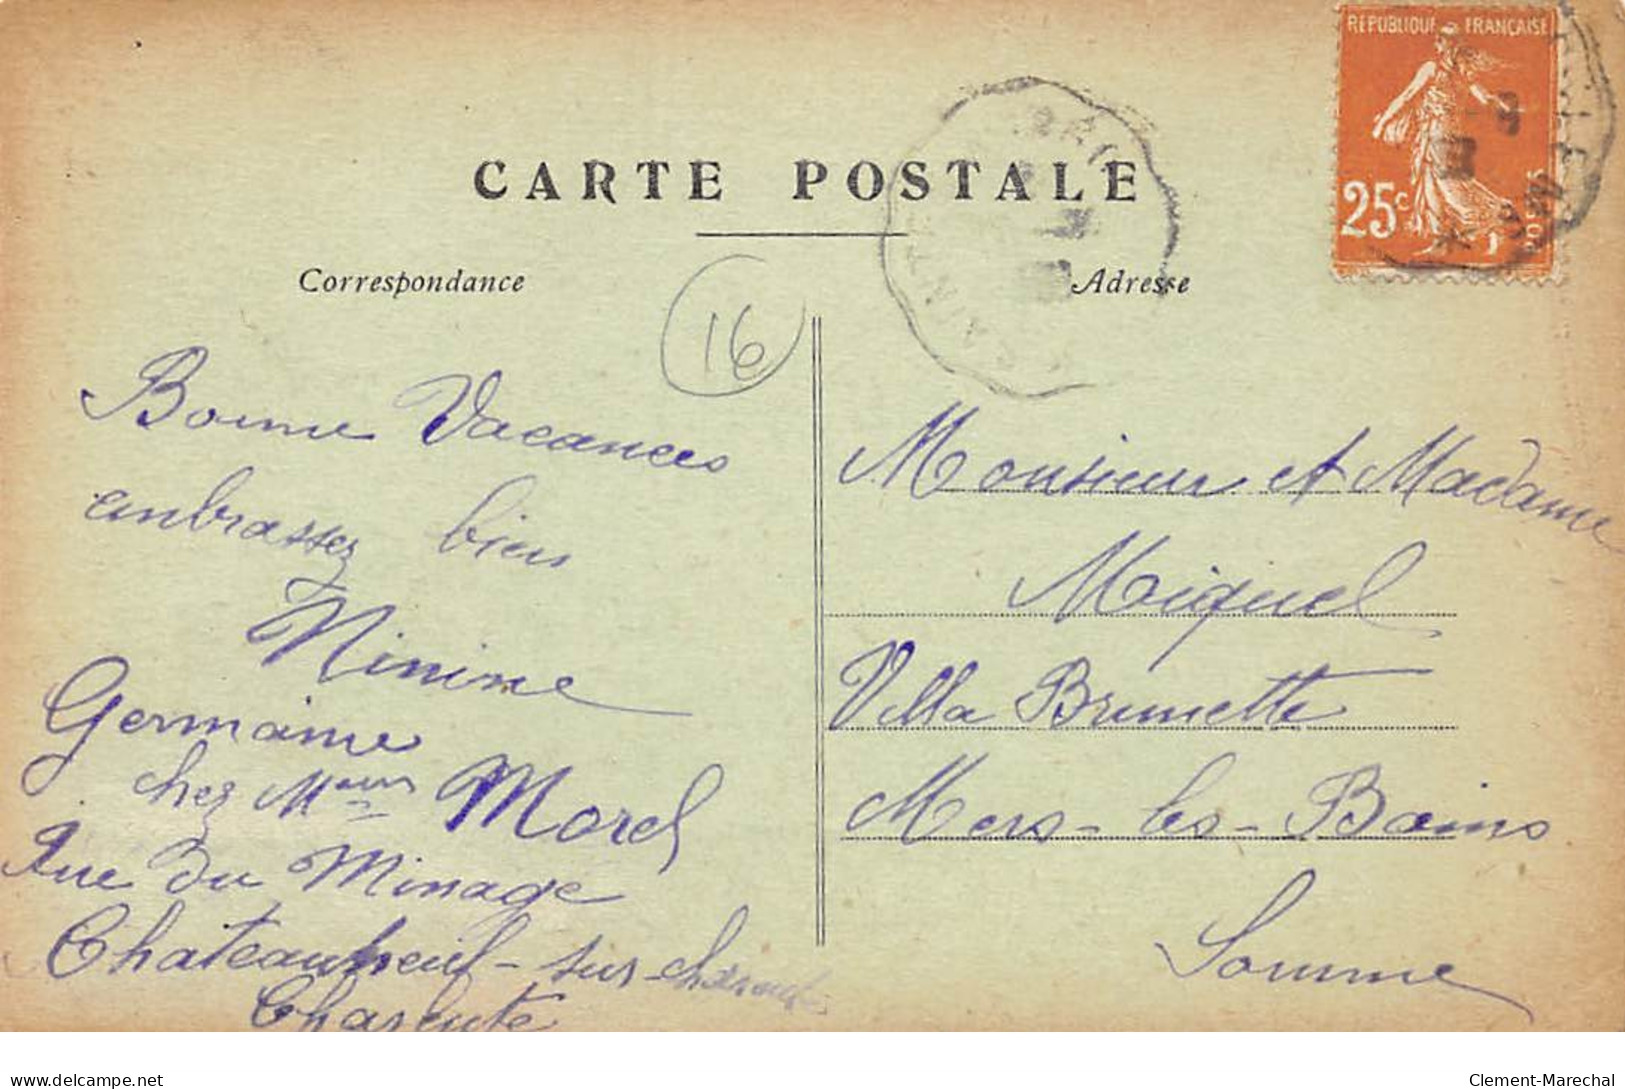 CARTE POSTALE
Correspondance
Adresse
REPUBLIQUE FRANÇAISE
25c
POSTES
16
Bonne Vacances
embrassez bien
Ninine
Germaine
chez Mme Morel
Rue du Minage
Chateauneuf-sur-charente
Charente
Monsieur et Madame
Miquel
Villa Brunette
Mers-les-Bains
Somme
delcampe.net
Clement-Marechal